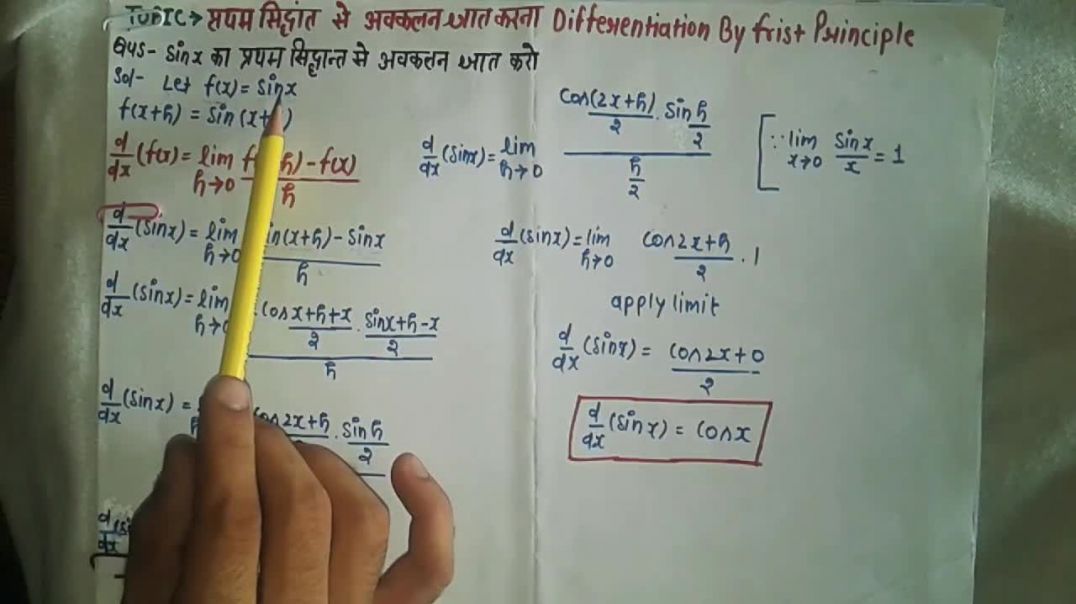 TOPIC → प्रथम सिद्धांत से अवकलन ज्ञात करना Differentiation By frist Principle
Ques - Sinx का प्रथम सिद्धान्त से अवकलन ज्ञात करो
Sol- Let f(x) = Sinx
f(x+h) = Sin (x+ )
d/dx (f(x)) = lim h→0 f( h) - f(x) / h
d/dx (Sinx) = lim h→0 in(x+h) - Sinx / h
d/dx (Sinx) = lim h→0 . Cos x+h+x / 2 . Sin x+h-x / 2 / h
d/dx (Sinx) = Cos 2x+h . Sin h / 2
d/dx (Sinx) = lim h→0 Cos (2x+h) / 2 . Sin h/2 / h/2 [∵ lim x→0 Sinx / x = 1
d/dx (Sinx) = lim h→0 Cos 2x+h / 2 . 1
apply limit
d/dx (Sinx) = Cos 2x+0 / 2
d/dx (Sinx) = Cos x